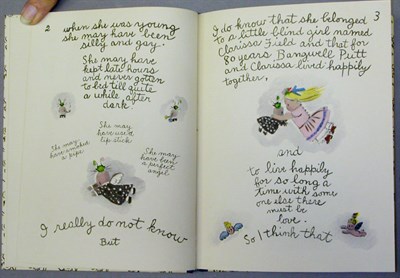 2
when she was young
she may have been
silly and gay.
She may have
kept late hours
and never gotten
to bed till quite
a while after
dark.
She may
have smoked
a pipe.
She may
have used a
lip stick
She may
have been
a perfect
angel.
I really do not know
But
3
I do know that she belonged
to a little blind girl named
Clarissa Field and that for
80 years Bangwell Putt
and Clarissa lived happily
together,
and
to live happily
for so long a
time with some
one else there
must be
love.
So I think that